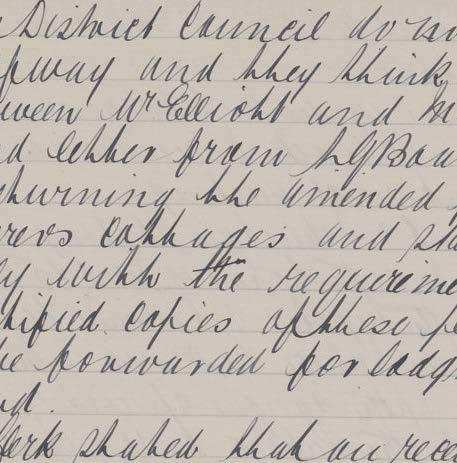 District Council do no
pway and they think
ween Mr Elliott and M
d letter from L G Boa
turning the amended
rers cottages and sta
ly with the requireme
tified copies of these pe
be forwarded for lodg
nd.
lerk stated that on rece